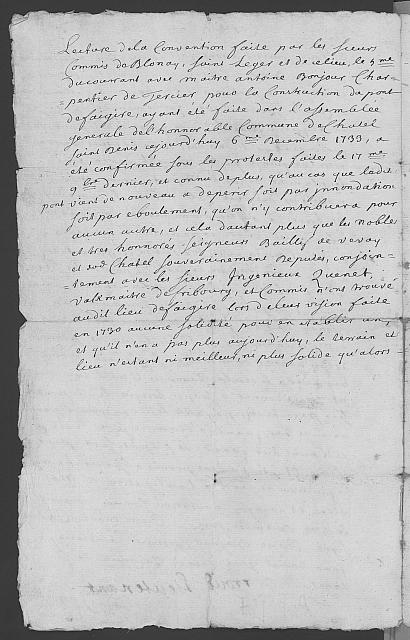 Lecture de la Convention faite par les sieurs
Commis de Blonay, Saint Leger et de ce lieu, le 5.me
du courrant avec maitre antoine Bonjour Char-
=pentier de pour la Construction du pont
de faigire, ayant été faite dans l'assemblée
generale de l'honnorable Commune de Chatel
saint Denis cejourd'huy 6.me Decembre 1733, a
été confirmée sous les protestes faites le 17.me
9.bre dernier, et connu de plus, qu'au cas que ladit
pont vient de nouveau a deperir soit par innondation
soit par eboulement, qu'on n'y contribuera pour
aucun autre, et cela dautant plus que les nobles
et tres honnorés seigneurs Baillifs de vevay
et dud. Chatel souverainement Deputés, conjoin-
=tement avec les sieurs Ingenieux Quenet,
maitre de fribourg, et Commis n'ont trouvé
audit lieu de faigire lors de leur vision faite
en 1730 aucune solidité pour en etablir un,
et qu'il n'en a pas plus aujourd'huy, le terrain et
lieu n'estant ni meilleur, ni plus solide qu'alors-